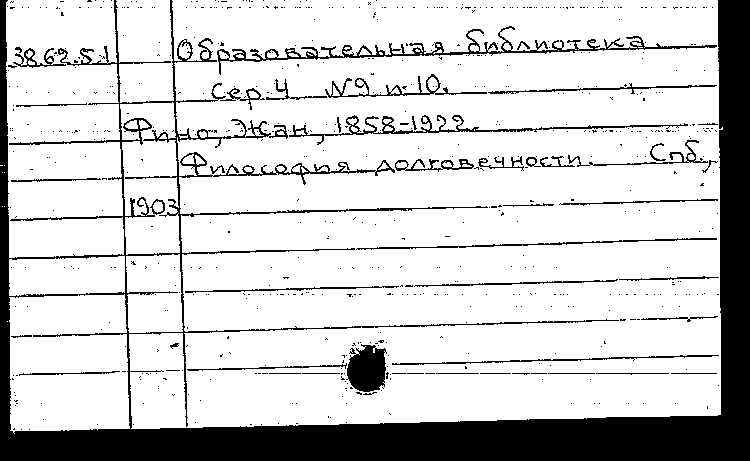 38.62.5.1 Образовательная библиотека.
Сер. 4 №9 и 10.
Фино, Жан, 1858-1922.
Философия долговечности. Спб.,
1903.